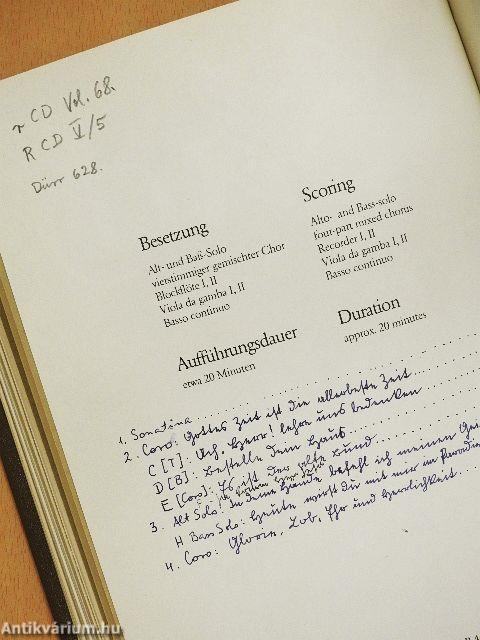 r CD Vol. 68.
R CD V/5
Dürr 628.
Besetzung
Alt- und Baß-Solo
vierstimmiger gemischter Chor
Blockflöte I, II
Viola da gamba I, II
Basso continuo
Scoring
Alto- and Bass-solo
four-part mixed chorus
Recorder I, II
Viola da gamba I, II
Basso continuo
Aufführungsdauer
etwa 20 Minuten
Duration
approx. 20 minutes
1. Sonatina
2. Coro: Gottes Zeit ist die allerbeste Zeit
C [T]: Ach, Herr! lehre uns bedenken
D [B]: Bestelle dein Haus
E [Coro]: Es ist der alte Bund
3. Alt Solo: In deine Hände befehl ich meinen
H Bass Solo: Heute wirst du mit mir im
4. Coro: Glorie, Lob, Ehr und Herrlichkeit
Antikvárium.hu